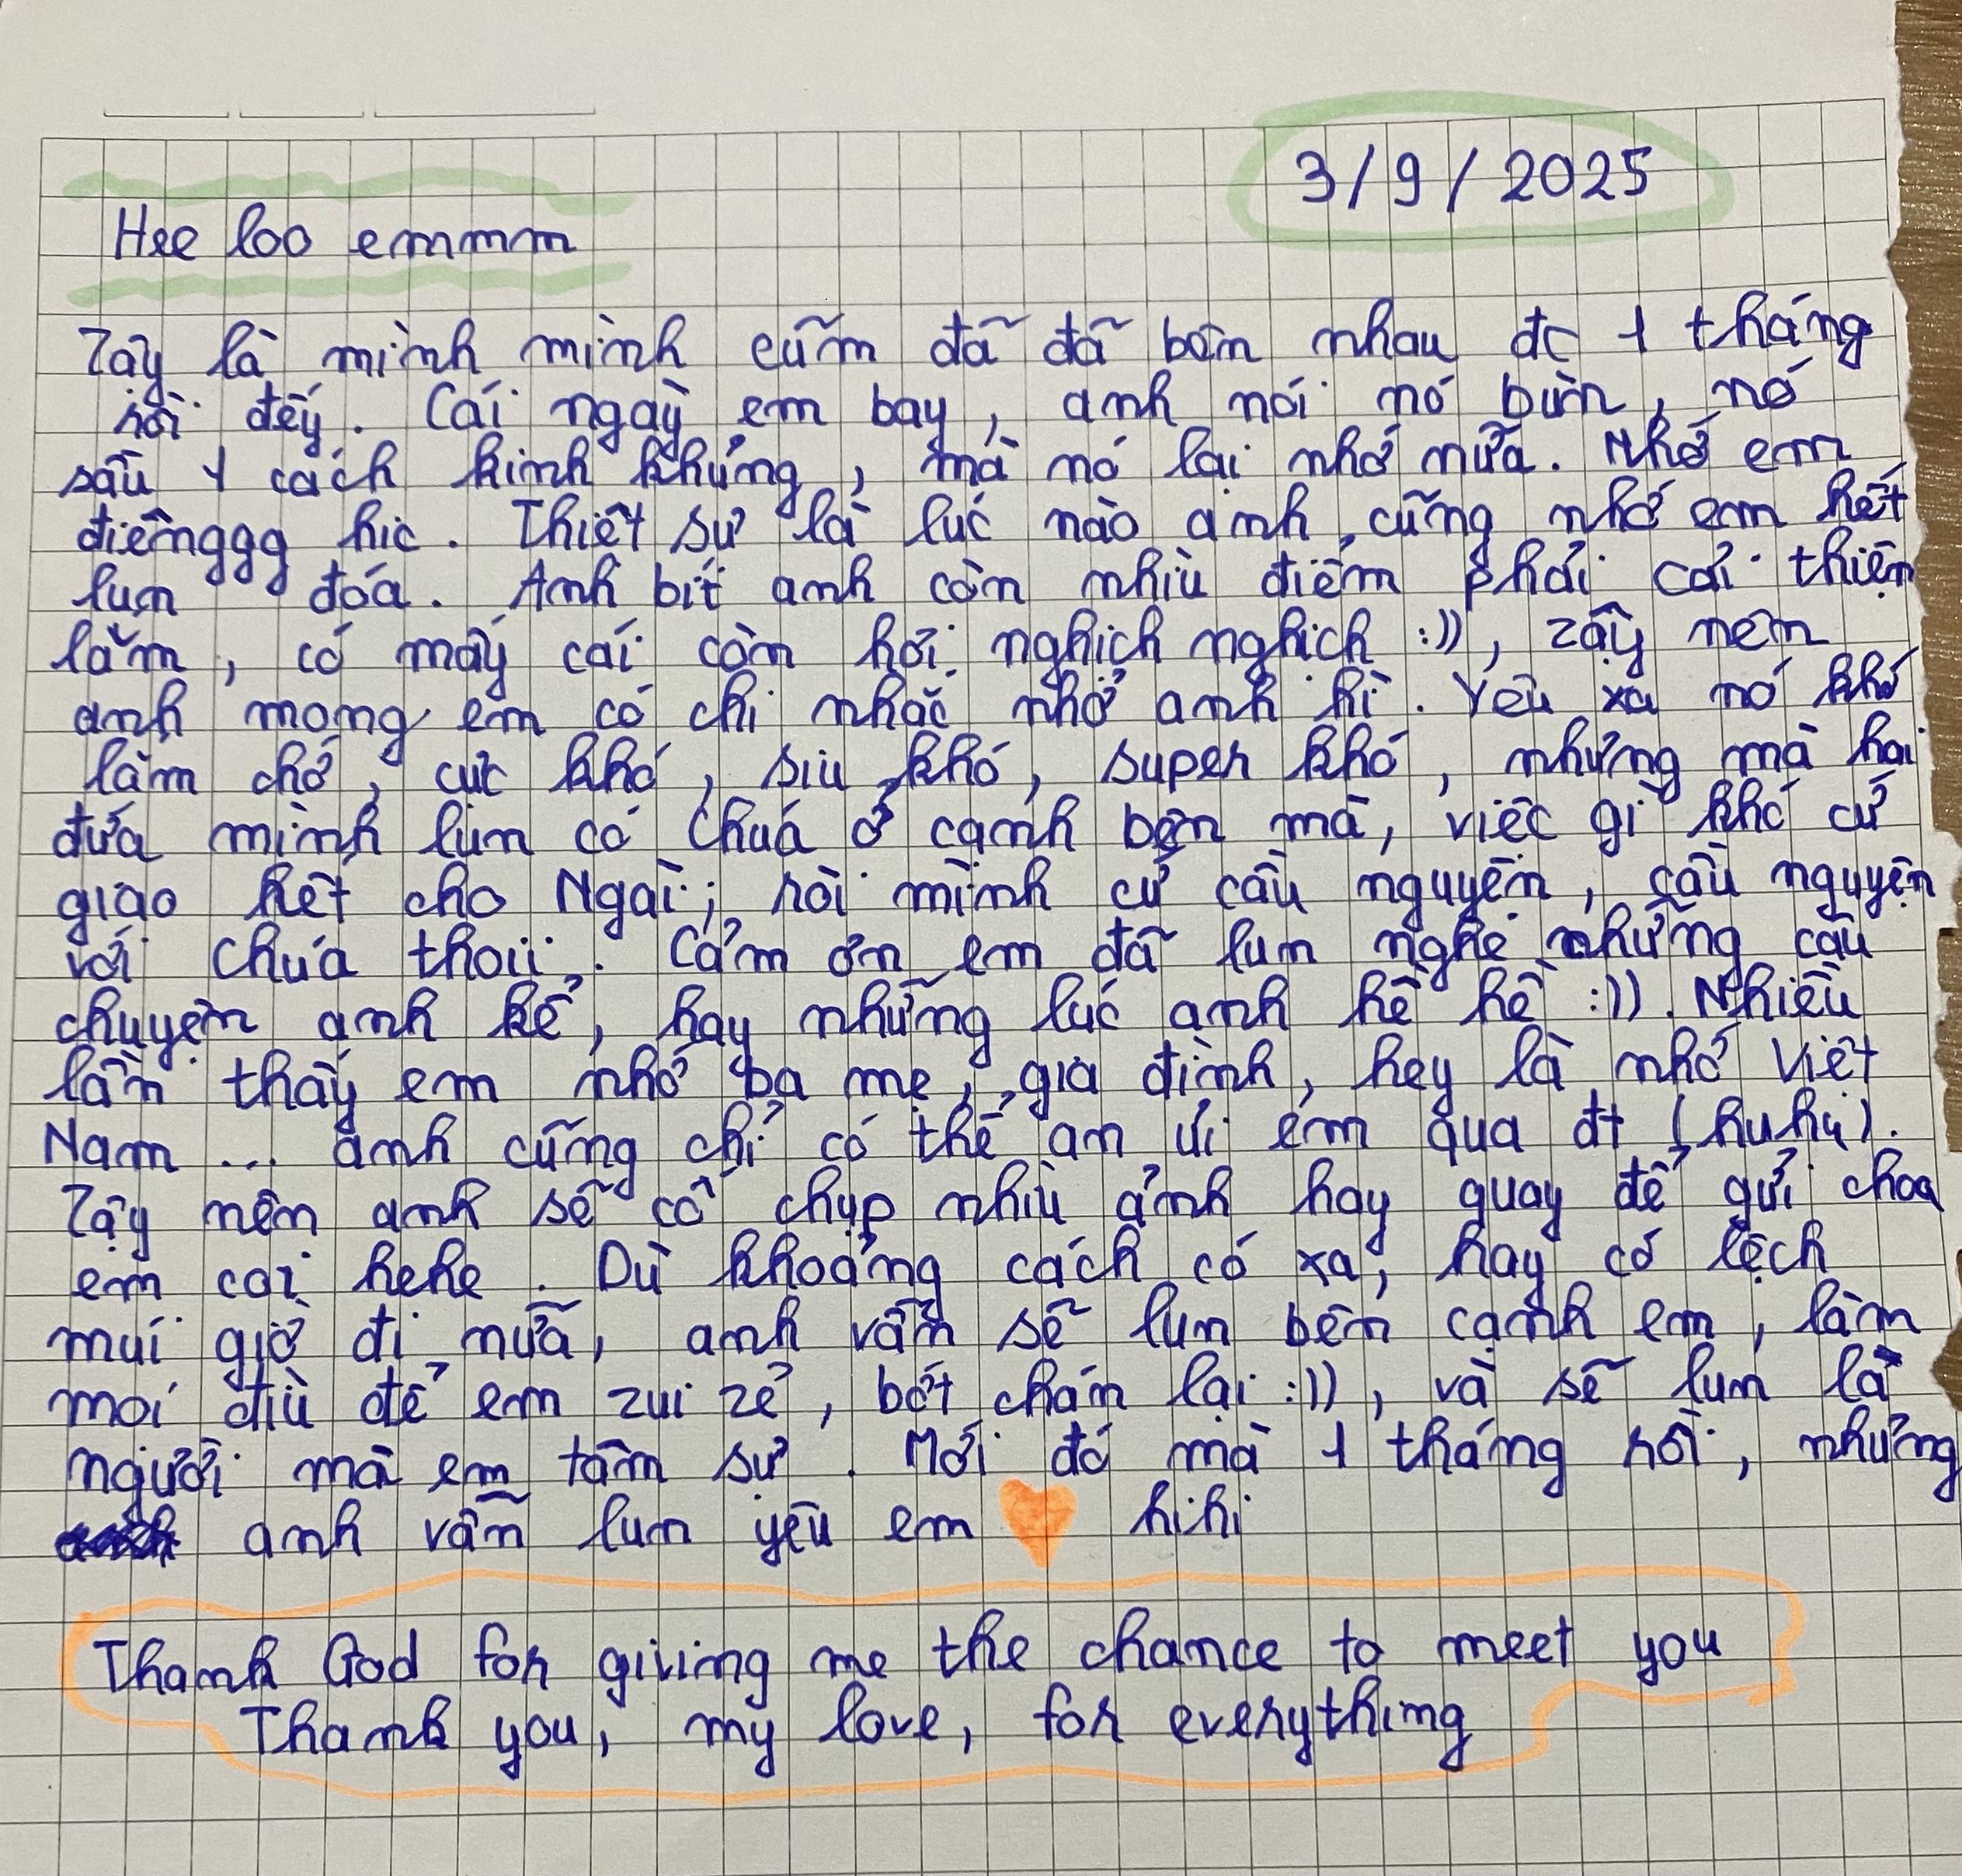 3/9/2025
Hee loo emmm
Zậy là mình mình cũm đã đã bồn nhau đc 1 tháng
rồi đếy. Cái ngày em bay, anh nói nó bùn, nó
sầu 1 cách kinh khủng, mà nó lại nhớ nữa. Nhớ em
điênggg hic. Thiệt sự là lúc nào anh cũng nhớ em hết
lun đóa. Anh bít anh còn nhìu điểm phải cải thiện
lắm, có mấy cái còn hơi nghịch nghịch :)), zậy nên
anh mong em có chi nhắc nhở anh hì. Yêu xa nó khó
lắm chớ, cực khó, siu khó, super khó, nhưng mà hai
đứa mình lun có Chúa ở cạnh bên mà, việc gì khó cứ
giao hết cho Ngài; rồi mình cứ cầu nguyện, cầu nguyện
với Chúa thoii. Cảm ơn em đã lun nghe những câu
chuyện anh kể, hay những lúc anh hề hề :)). Nhiều
lần thấy em nhớ ba mẹ, gia đình, hey là nhớ Việt
Nam ... anh cũng chỉ có thể an ủi em qua đt (huhu).
Zậy nên anh sẽ cố chụp nhìu ảnh hay quay để gửi choa
em coi hehe. Dù khoảng cách có xa, hay có lệch
múi giờ đi nữa, anh vẫn sẽ lun bên cạnh em, làm
mọi điù để em zui zẻ, bớt chán lại :)), và sẽ lun là
người mà em tâm sự. Mới đó mà 1 tháng rồi, nhưng
anh vẫn lun yêu em hihi
Thank God for giving me the chance to meet you
Thank you, my love, for everything